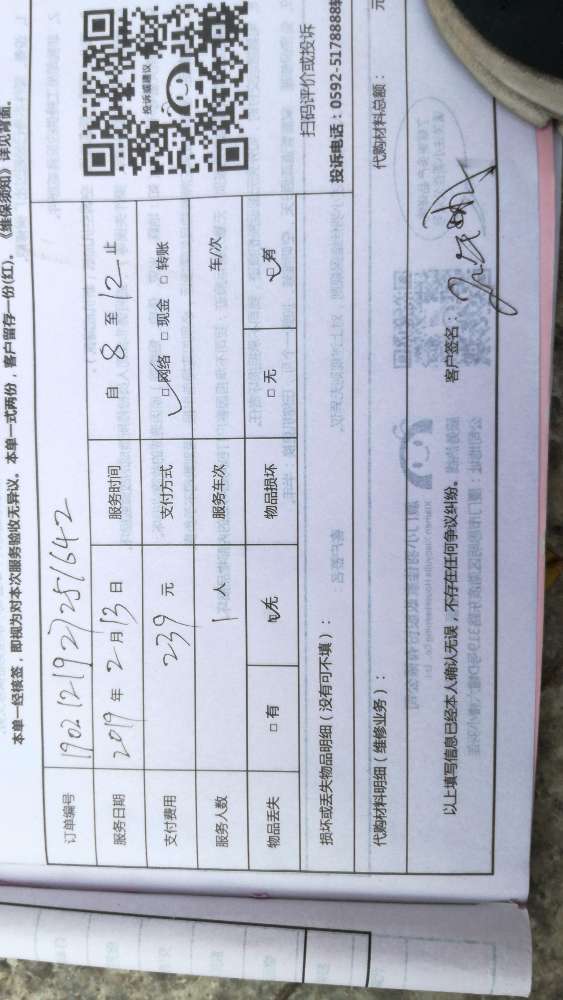 本单一经核签，即视为对本次服务验收无异议。本单一式两份，客户留存一份(红)。《维保须知》详见背面。
订单编号 19021219272251642
服务日期 2019 年 2 月 13 日 服务时间 自 8 至 12 止
支付费用 239 元 支付方式 □网络 □现金 □转账
服务人数 1 人 服务车次 车/次
物品丢失 □有 □无 物品损坏 □无 □有
投诉或建议
扫码评价或投诉
投诉电话：0592-5178888转
损坏或丢失物品明细（没有可不填）：
代购材料明细（维修业务）：
代购材料总额： 元
以上填写信息已经本人确认无误，不存在任何争议纠纷。 客户签名：